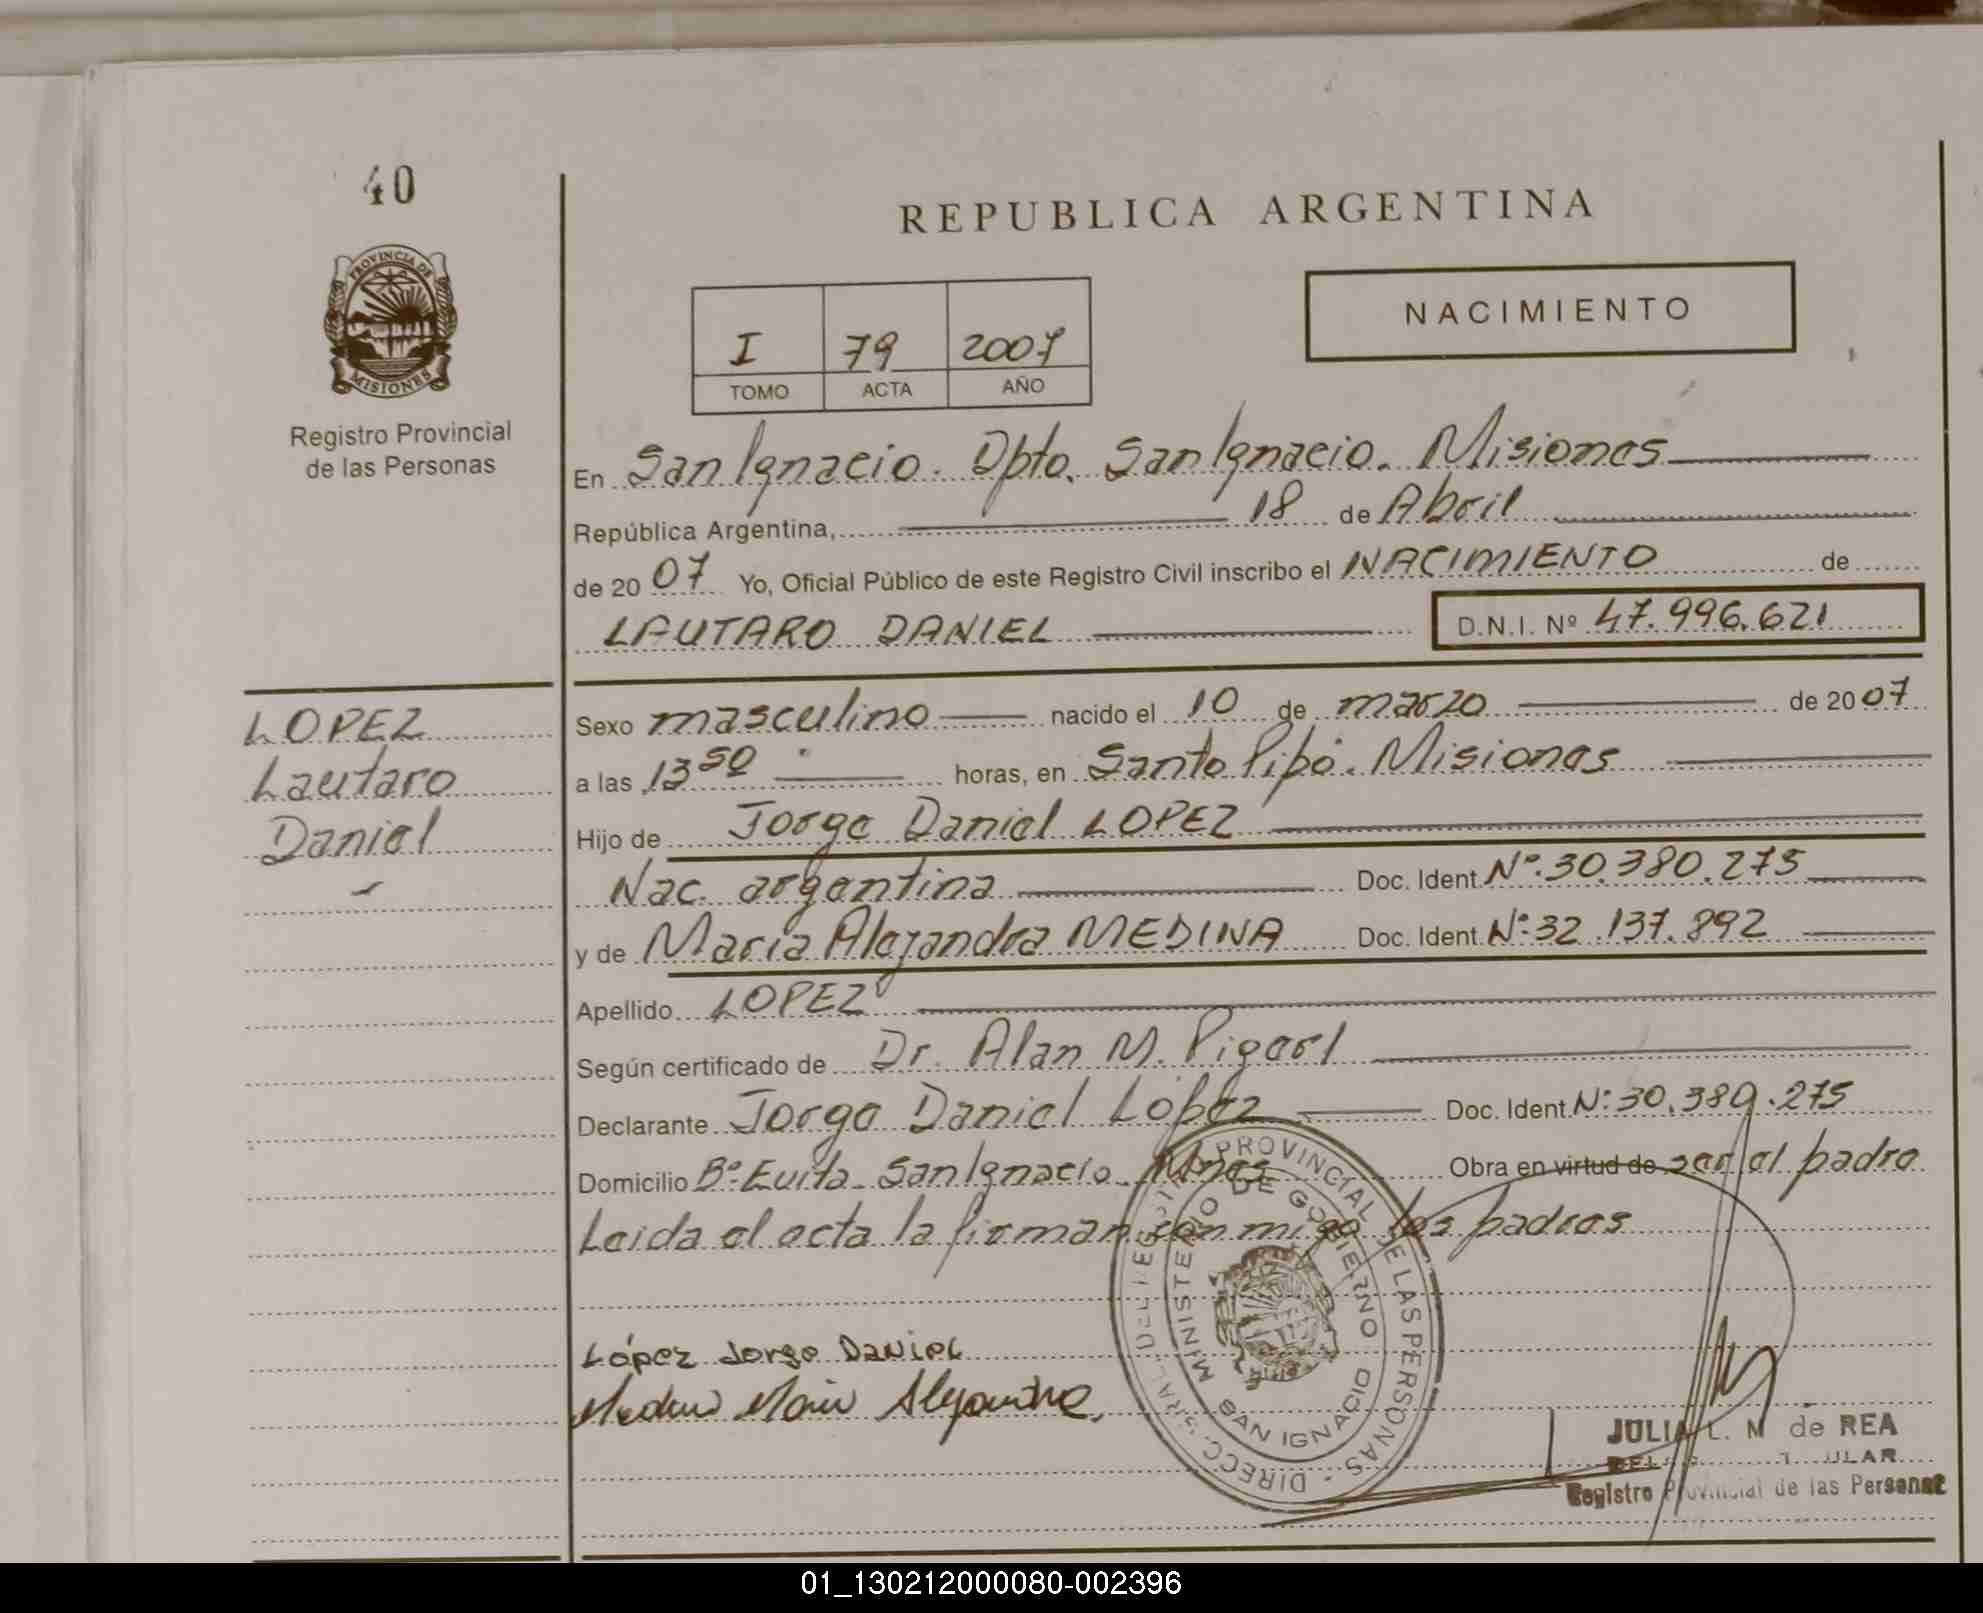 40
PROVINCIA DE
MISIONES
Registro Provincial
de las Personas
REPUBLICA ARGENTINA
I 79 2007
TOMO ACTA AÑO
NACIMIENTO
En San Ignacio. Dpto. San Ignacio. Misiones
República Argentina, 18 de Abril
de 2007 Yo, Oficial Público de este Registro Civil inscribo el NACIMIENTO de
LAUTARO DANIEL D.N.I. Nº 47.996.621
LOPEZ
Lautaro
Daniel
Sexo masculino nacido el 10 de marzo de 2007
a las 13 50 horas, en Santo Pipó. Misiones
Hijo de Jorge Daniel LOPEZ
Nac. argentina Doc. Ident. Nº:30.380.275
y de María Alejandra MEDINA Doc. Ident. Nº:32.137.892
Apellido LOPEZ
Según certificado de Dr. Alan M.
Declarante Jorge Daniel López Doc. Ident. Nº:30.380.275
Domicilio Bº: Evita. San Ignacio. Mnes Obra en virtud de ser el padre
Leida el acta la firman con migo los padres
López Jorge Daniel
Medina María Alejandra
DIRECC. GRAL. DEL REG. PROVINCIAL DE LAS PERSONAS
MINISTERIO DE GOBIERNO
SAN IGNACIO
JULIA L. M de REA
Registro Provincial de las Personas
01_130212000080-002396